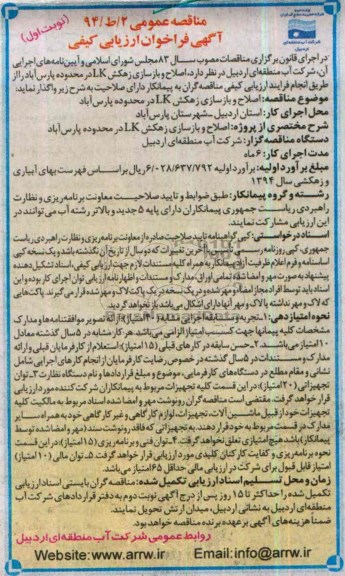 مناقصه عمومی ۲/ط/۹۴
آگهی فراخوان ارزیابی کیفی
(نوبت اول)
شرکت آب منطقه‌ای
اردبیل
در اجرای قانون برگزاری مناقصات مصوب سال ۸۳ مجلس شورای اسلامی و آیین‌نامه‌های اجرایی
آن، شرکت آب منطقه‌ای اردبیل در نظر دارد، اصلاح و بازسازی زهکش LK در محدوده پارس‌آباد را از
طریق انجام فرایند ارزیابی کیفی مناقصه گران به پیمانکار دارای صلاحیت به شرح زیر واگذار نماید:
موضوع مناقصه: اصلاح و بازسازی زهکش LK در محدوده پارس‌آباد
محل اجرای کار: استان اردبیل-شهرستان پارس‌آباد
شرح مختصری از پروژه: اصلاح و بازسازی زهکش LK در محدوده پارس‌آباد
دستگاه مناقصه گزار: شرکت آب منطقه‌ای اردبیل
مدت اجرای کار: ۶ ماه
مبلغ برآورد اولیه: برآورد اولیه ۶/۰۲۸/۶۳۷/۷۹۲ ریال بر اساس فهرست بهای آبیاری
و زهکشی سال ۱۳۹۴
رشته و گروه پیمانکار: طبق ضوابط و تایید صلاحیت معاونت برنامه‌ریزی و نظارت
راهبردی ریاست جمهوری پیمانکاران دارای پایه ۵ جدید و بالاتر رشته آب می‌توانند در
این ارزیابی مشارکت نمایند.
اسناد درخواستی: کپی گواهینامه تایید صلاحیت صادره از معاونت برنامه‌ریزی و نظارت راهبردی ریاست
جمهوری، کپی روزنامه رسمی تاسیس و آخرین تغییرات که دو سال از تاریخ آن نگذشته باشد و یک نسخه کپی
اساسنامه و فرم اعلام ظرفیت آزاد پیمانکار به همراه کلیه مستندات لازم جهت ارزیابی کیفی، اسناد تشکیل دهنده
پیشنهاد به صورت مهر و امضا شده تمامی اوراق، مدارک و مستندات و اظهارنامه ارزیابی توان اجرای کار بوده و این
اسناد باید توسط افراد مجاز امضا و مهر شده و در یک نسخه در یک پاکت لاک و مهر شده قرار می‌گیرند. پاکت‌هایی
که لاک و مهر نداشته یا لاک و مهر آنها دارای اشکال می‌باشد باز نخواهد گردید.
نحوه امتیازدهی: ۱-تجربه و سابقه اجرایی مشابه (۴۰ امتیاز): ارائه تصویر موافقتنامه‌ها و مدارک
مشخصات کلیه پیمانها جهت کسب امتیاز الزامی می‌باشد. هر کار مشابه در ۵ سال گذشته معادل
۱۰ امتیاز می‌باشد. ۲-حسن سابقه در کارهای قبلی (۱۵ امتیاز): استعلام از کارفرمایان قبلی و ارائه
مدارک و مستندات در ۵ سال گذشته در خصوص رضایت کارفرمایان از انجام کارهای اجرایی شامل
نشانی و مقام مطلع در دستگاه‌های کارفرمایی، موضوع و مبلغ قراردادها و نام دستگاه نظارت ۳-توان
تجهیزاتی (۲۰ امتیاز): در این قسمت کلیه تجهیزات مربوط به پیمانکاران شرکت کننده مورد ارزیابی
قرار خواهد گرفت. مقتضی است مناقصه گران رونوشت مهر و امضا شده اسناد مربوط به مالکیت کلیه
تجهیزات خود از قبیل ماشین آلات، تجهیزات، لوازم کارگاهی و غیر کارگاهی خود به همراه سایر
مدارک در قسمت مربوط به خود قرار دهند. به تجهیزاتی که فاقد رونوشت سند (مهر و امضا شده توسط
پیمانکار) باشد هیچ امتیازی تعلق نخواهد گرفت. ۴-توان فنی و برنامه‌ریزی (۱۵ امتیاز): در این قسمت
نحوه برنامه‌ریزی و کفایت کارکنان کلیدی مورد ارزیابی قرار خواهد گرفت. ۵-توان مالی (۱۰ امتیاز)
امتیاز قابل قبول برای شرکت در ارزیابی مالی حداقل ۶۵ امتیاز می‌باشد.
زمان و محل تسلیم اسناد ارزیابی تکمیل شده: مناقصه گران بایستی اسناد ارزیابی
تکمیل شده را حداکثر تا ۱۵ روز پس از درج آگهی نوبت دوم به دفتر قراردادهای شرکت آب
منطقه‌ای اردبیل به نشانی اردبیل، میدان ارتش تحویل نمایند.
ضمناً هزینه‌های آگهی بر عهده برنده مناقصه خواهد بود.
روابط عمومی شرکت آب منطقه‌ای اردبیل
Website: www.arrw.ir Email: info@arrw.ir